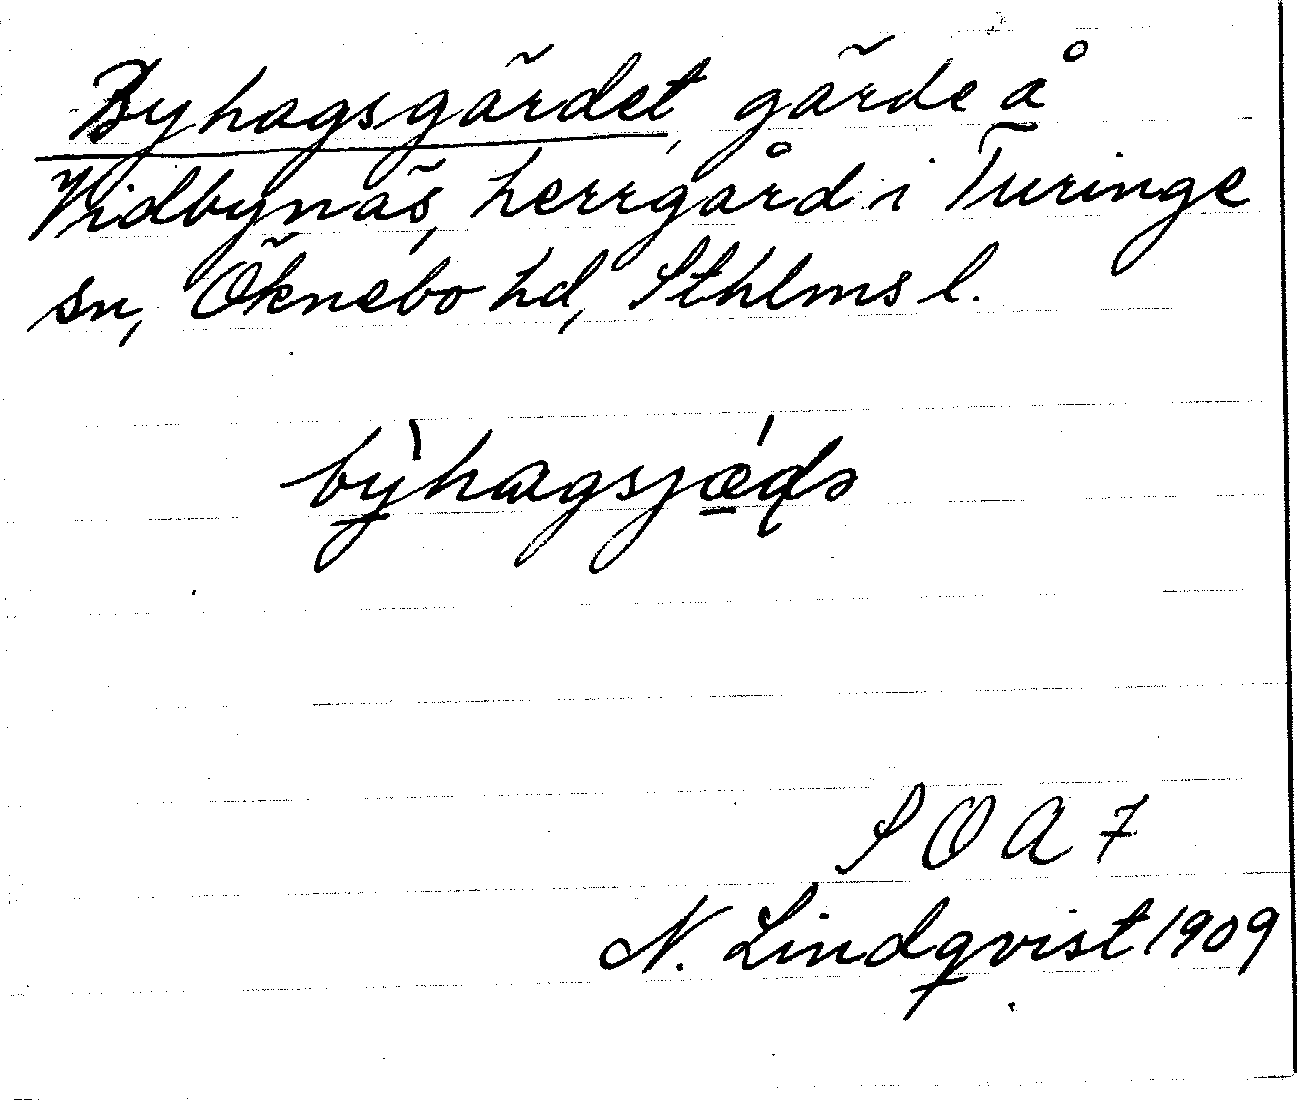 Byhagsgärdet, gärde å
Vidbynäs, herrgård i Turinge
sn, Öknebo hd, Sthlms l.
bỳhagsjǽ̲ḍə
S O A 7
N. Lindqvist 1909